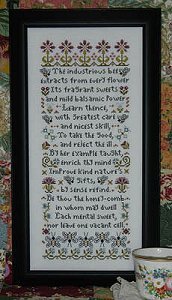 The industrious bee
extracts from every flower
Its fragrant sweets
and mild balsamic power
Learn thence,
with greatest care
and nicest skill,
To take the good,
and reject the ill.
By her example taught
enrich thy mind
Improve kind nature's
Gifts,
by sense refind.
Be thou the honey-comb
in whom may dwell
Each mental sweet,
nor leave one vacant cell.